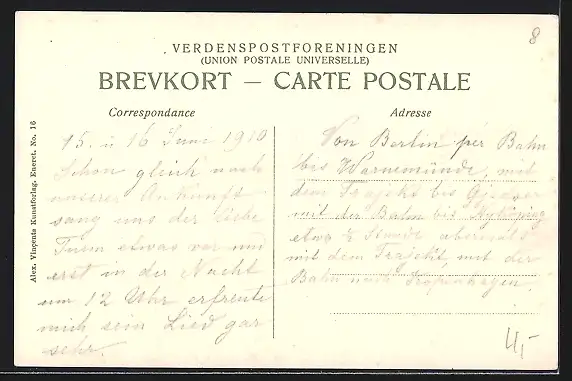 8
VERDENSPOSTFORENINGEN
(UNION POSTALE UNIVERSELLE)
BREVKORT — CARTE POSTALE
Correspondance
Adresse
Alex. Vincents Kunstforlag, Eneret. No. 16
15. u 16 Juni 1910
Schon gleich nach
unserer Ankunft
sang uns der liebe
Turm etwas vor und
erst in der Nacht
um 12 Uhr erfreute
mich sein Lied gar
sehr.
Von Berlin per Bahn
bis Warnemünde, mit
dem Trajekt bis Gjedser
mit der Bahn bis
etwa ½ Stunde abermals
mit dem Trajekt, mit der
Bahn nach Kopenhagen.
4,-